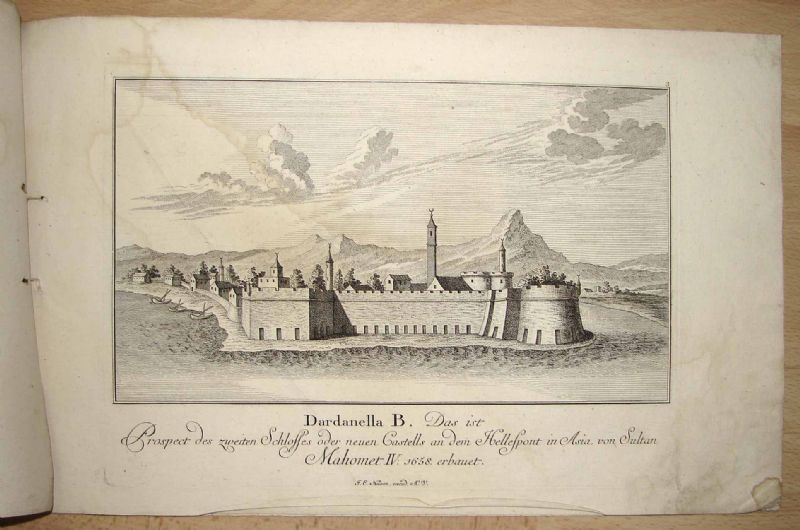 Dardanella B. Das ist
Prospect des zweiten Schlosses oder neuen Castells an dem Hellespont in Asia von Sultan
Mahomet IV. 1658. erbauet.
excud. A. V.